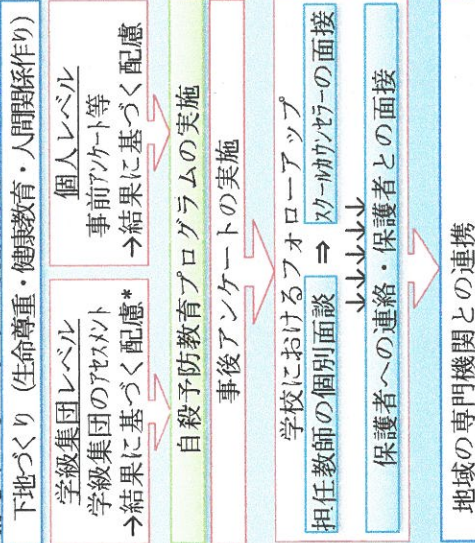 下地づくり（生命尊重・健康教育・人間関係作り）
学級集団レベル
学級集団のアセスメント
→結果に基づく配慮*
個人レベル
事前アンケート等
→結果に基づく配慮
自殺予防教育プログラムの実施
事後アンケートの実施
学校におけるフォローアップ
担任教師の個別面談 ⇒ スクールカウンセラーの面接
↓↓↓↓↓
保護者への連絡・保護者との面接
地域の専門機関との連携